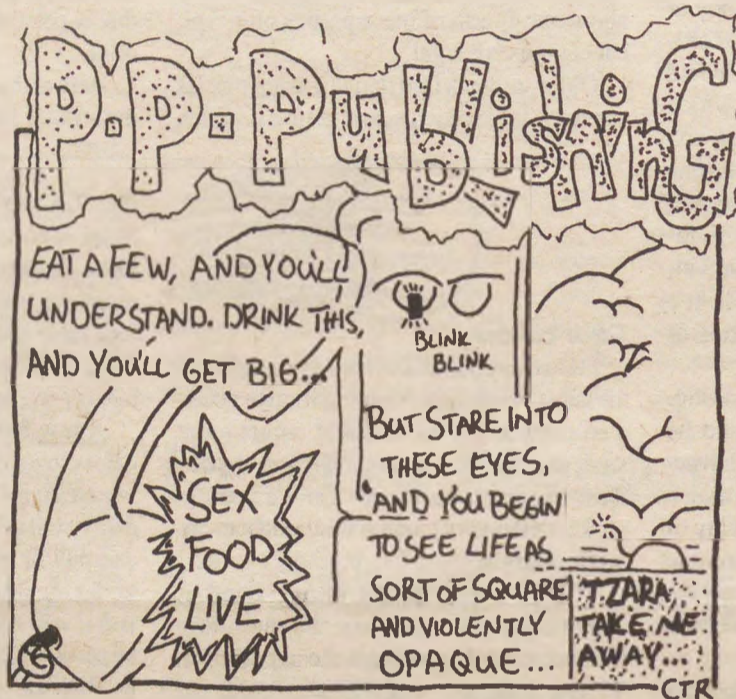 P.P. Publishing
EAT A FEW, AND YOU'LL
UNDERSTAND. DRINK THIS,
AND YOU'LL GET BIG...
SEX
FOOD
LIVE
BLINK
BLINK
BUT STARE INTO
THESE EYES,
AND YOU BEGIN
TO SEE LIFE AS
SORT OF SQUARE
AND VIOLENTLY
OPAQUE...
TZARA,
TAKE ME
AWAY...
CTR